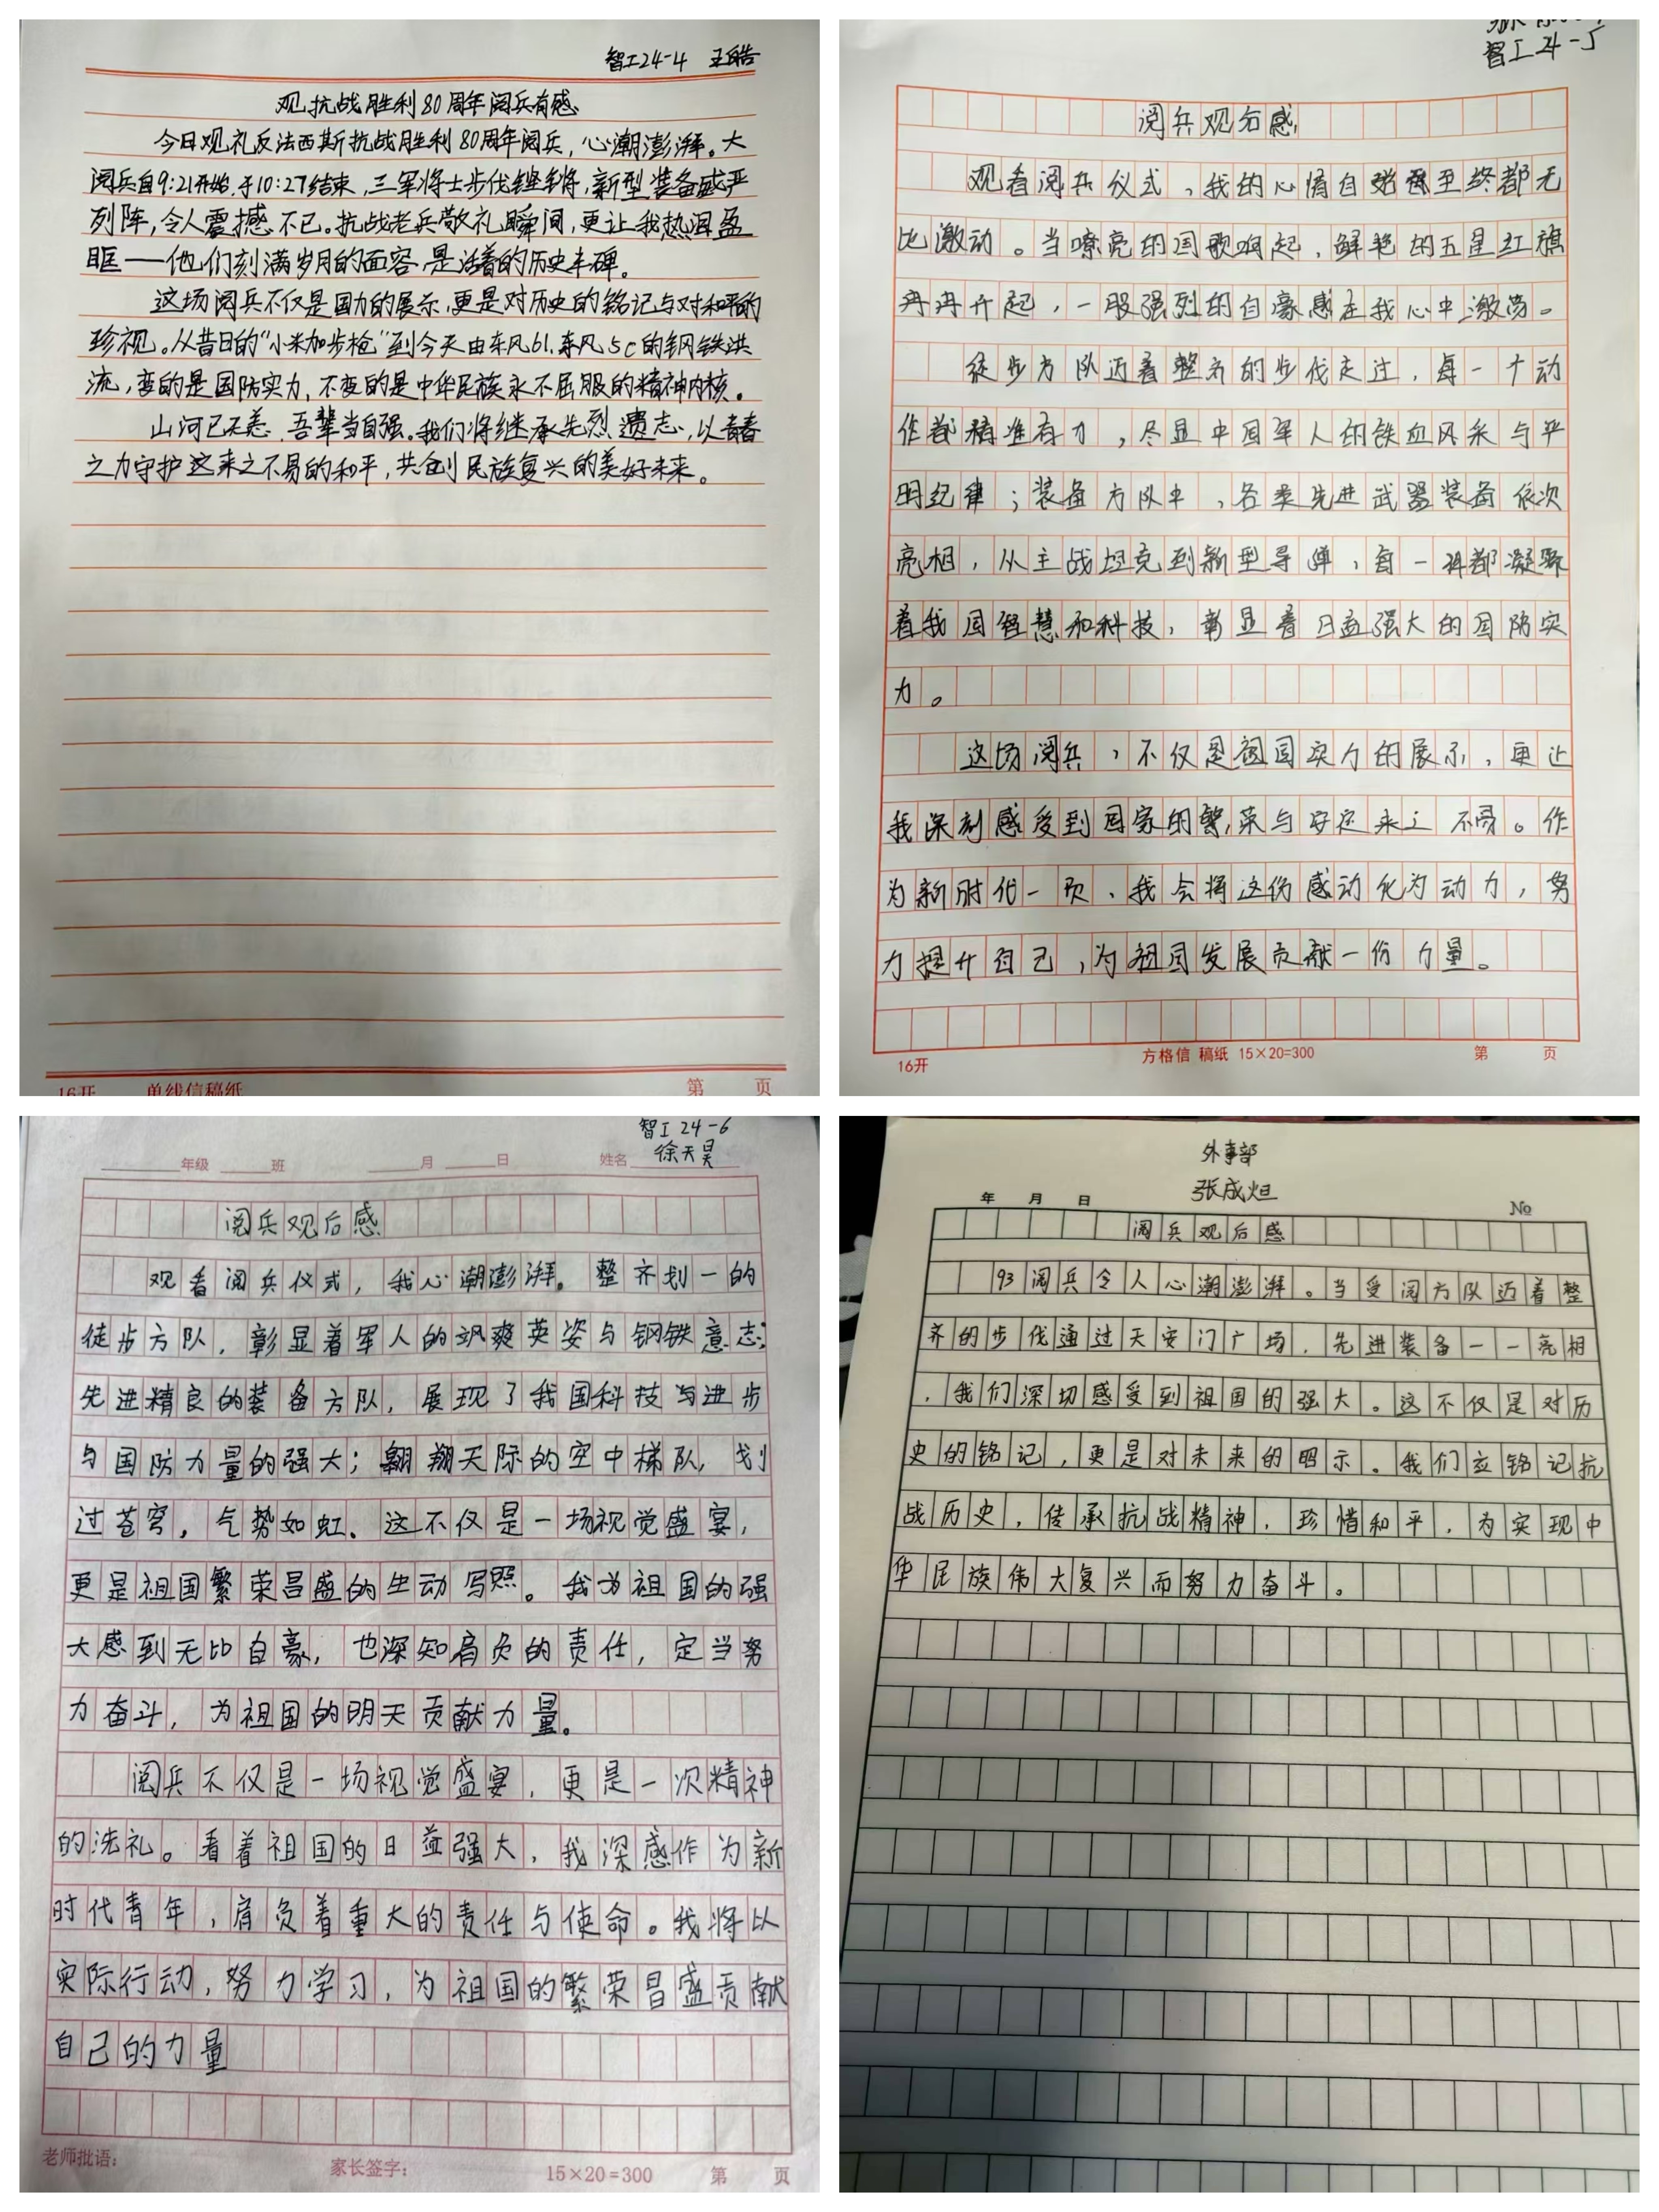 智工24-4 王皓
观抗战胜利80周年阅兵有感
今日观礼反法西斯抗战胜利80周年阅兵，心潮澎湃。大
阅兵自9:21开始，于10:27结束，三军将士步伐铿锵，新型装备威严
列阵，令人震撼不已。抗战老兵敬礼瞬间，更让我热泪盈
眶——他们刻满岁月的面容，是活着的历史丰碑。
这场阅兵不仅是国力的展示，更是对历史的铭记与对和平的
珍视。从昔日的“小米加步枪”到今天由东风61、东风5c的钢铁洪
流，变的是国防实力，不变的是中华民族永不屈服的精神内核。
山河已无恙，吾辈当自强。我们将继承先烈遗志，以青春
之力守护这来之不易的和平，共创民族复兴的美好未来。
16开 单线信稿纸 第 页
智工24-5
阅兵观后感
观看阅兵仪式，我的心情自始至终都无
比激动。当嘹亮的国歌响起，鲜艳的五星红旗
冉冉升起，一股强烈的自豪感在我心中激荡。
徒步方队迈着整齐的步伐走过，每一个动
作都精准有力，尽显中国军人的铁血风采与严
明纪律；装备方队中，各类先进武器装备依次
亮相，从主战坦克到新型导弹，每一件都凝聚
着我国智慧和科技，彰显着日益强大的国防实
力。
这场阅兵，不仅是祖国实力的展示，更让
我深刻感受到国家的繁荣与安定来之不易。作
为新时代一员，我会将这份感动化为动力，努
力提升自己，为祖国发展贡献一份力量。
16开 方格信稿纸 15×20=300 第 页
智工24-6
年级 班 月 日 姓名 徐天昊
阅兵观后感
观看阅兵仪式，我心潮澎湃。整齐划一的
徒步方队，彰显着军人的飒爽英姿与钢铁意志；
先进精良的装备方队，展现了我国科技与进步
与国防力量的强大；翱翔天际的空中梯队，划
过苍穹，气势如虹。这不仅是一场视觉盛宴，
更是祖国繁荣昌盛的生动写照。我为祖国的强
大感到无比自豪，也深知肩负的责任，定当努
力奋斗，为祖国的明天贡献力量。
阅兵不仅是一场视觉盛宴，更是一次精神
的洗礼。看着祖国的日益强大，我深感作为新
时代青年，肩负着重大的责任与使命。我将以
实际行动，努力学习，为祖国的繁荣昌盛贡献
自己的力量
老师批语： 家长签字： 15×20=300 第 页
外事部
张成烜
年 月 日 No
阅兵观后感
93阅兵令人心潮澎湃。当受阅方队迈着整
齐的步伐通过天安门广场，先进装备一一亮相
，我们深切感受到祖国的强大。这不仅是对历
史的铭记，更是对未来的昭示。我们应铭记抗
战历史，传承抗战精神，珍惜和平，为实现中
华民族伟大复兴而努力奋斗。